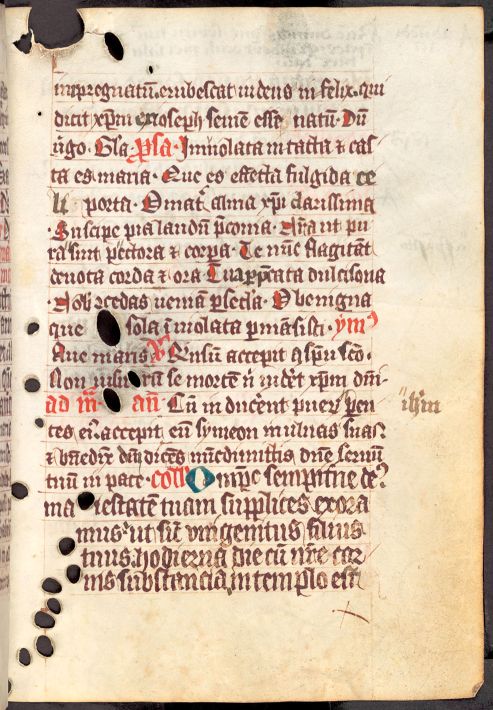 impregnatū. erubescat iudeus infelix. qui
dicit xp̄m ex ioseph semīe esse natū. Dū
v̄go. Gla. p̄sa. Inuiolata intacta & cas
ta es maria. Que es effecta fulgida ce
li porta. O mat̓ alma xp̄i carissima
Suscipe pia laudū p̄conia. Nr̄a ut pu
ra sint pectora & corpa. Te nūc flagitāt
deuota corda & ora Tua p̱ p̄cata dulcisona
Nob̓ cedas ueniam p̱ secla. O benigna
que sola īuiolata p̱mansisti. ym̓
Aue maris Rn̄sū accepit a sp̄u sc̄o.
Non uisurū se mortē n̄ uidēt xp̄m dn̄i
ad m̄ an̄ Cū inducēnt puerū paren
tes ei᷒. accepit eū symeon in ulnas suas
& bn̄edix̄ dm̄ dicēs nūc dimittis dn̄e seruū
tuū in pace. coll Omp̄c sempit̓ne de᷒
maiestatē tuam supplices exora
mus᷒ ut sic̄ unigenitus filius
tuus hodierna die cū nr̄e car
nis substancia in templo est
ihm̄